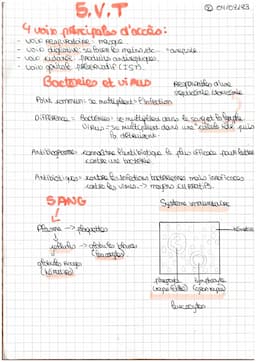 S.V.T
4 voies principales d'accès:
- voie respiratoire: masque
- voie digestive: se laver les mains etc
- voie cutanée: produits antiseptiques.
- voie génitale: préservatif (IST)
Bactéries et virus
Point commun: se multiplient → l'infection
Différence = Bactéries: se multiplient dans le sang et
Virus → se multiplient dans une cellule
Antibiogramme: connaître l'antibiotique le plus efficace pour lutter
contre une bactérie
Antibiotiques: contre les infections bactériennes mais inefficaces
contre les virus.
SANG
Système immunitaire
Plasma → plaquettes
globules → globules blancs
(leucocytes)
globules rouges
(hématies)
phagocyte
lymphocyte
leucocytes